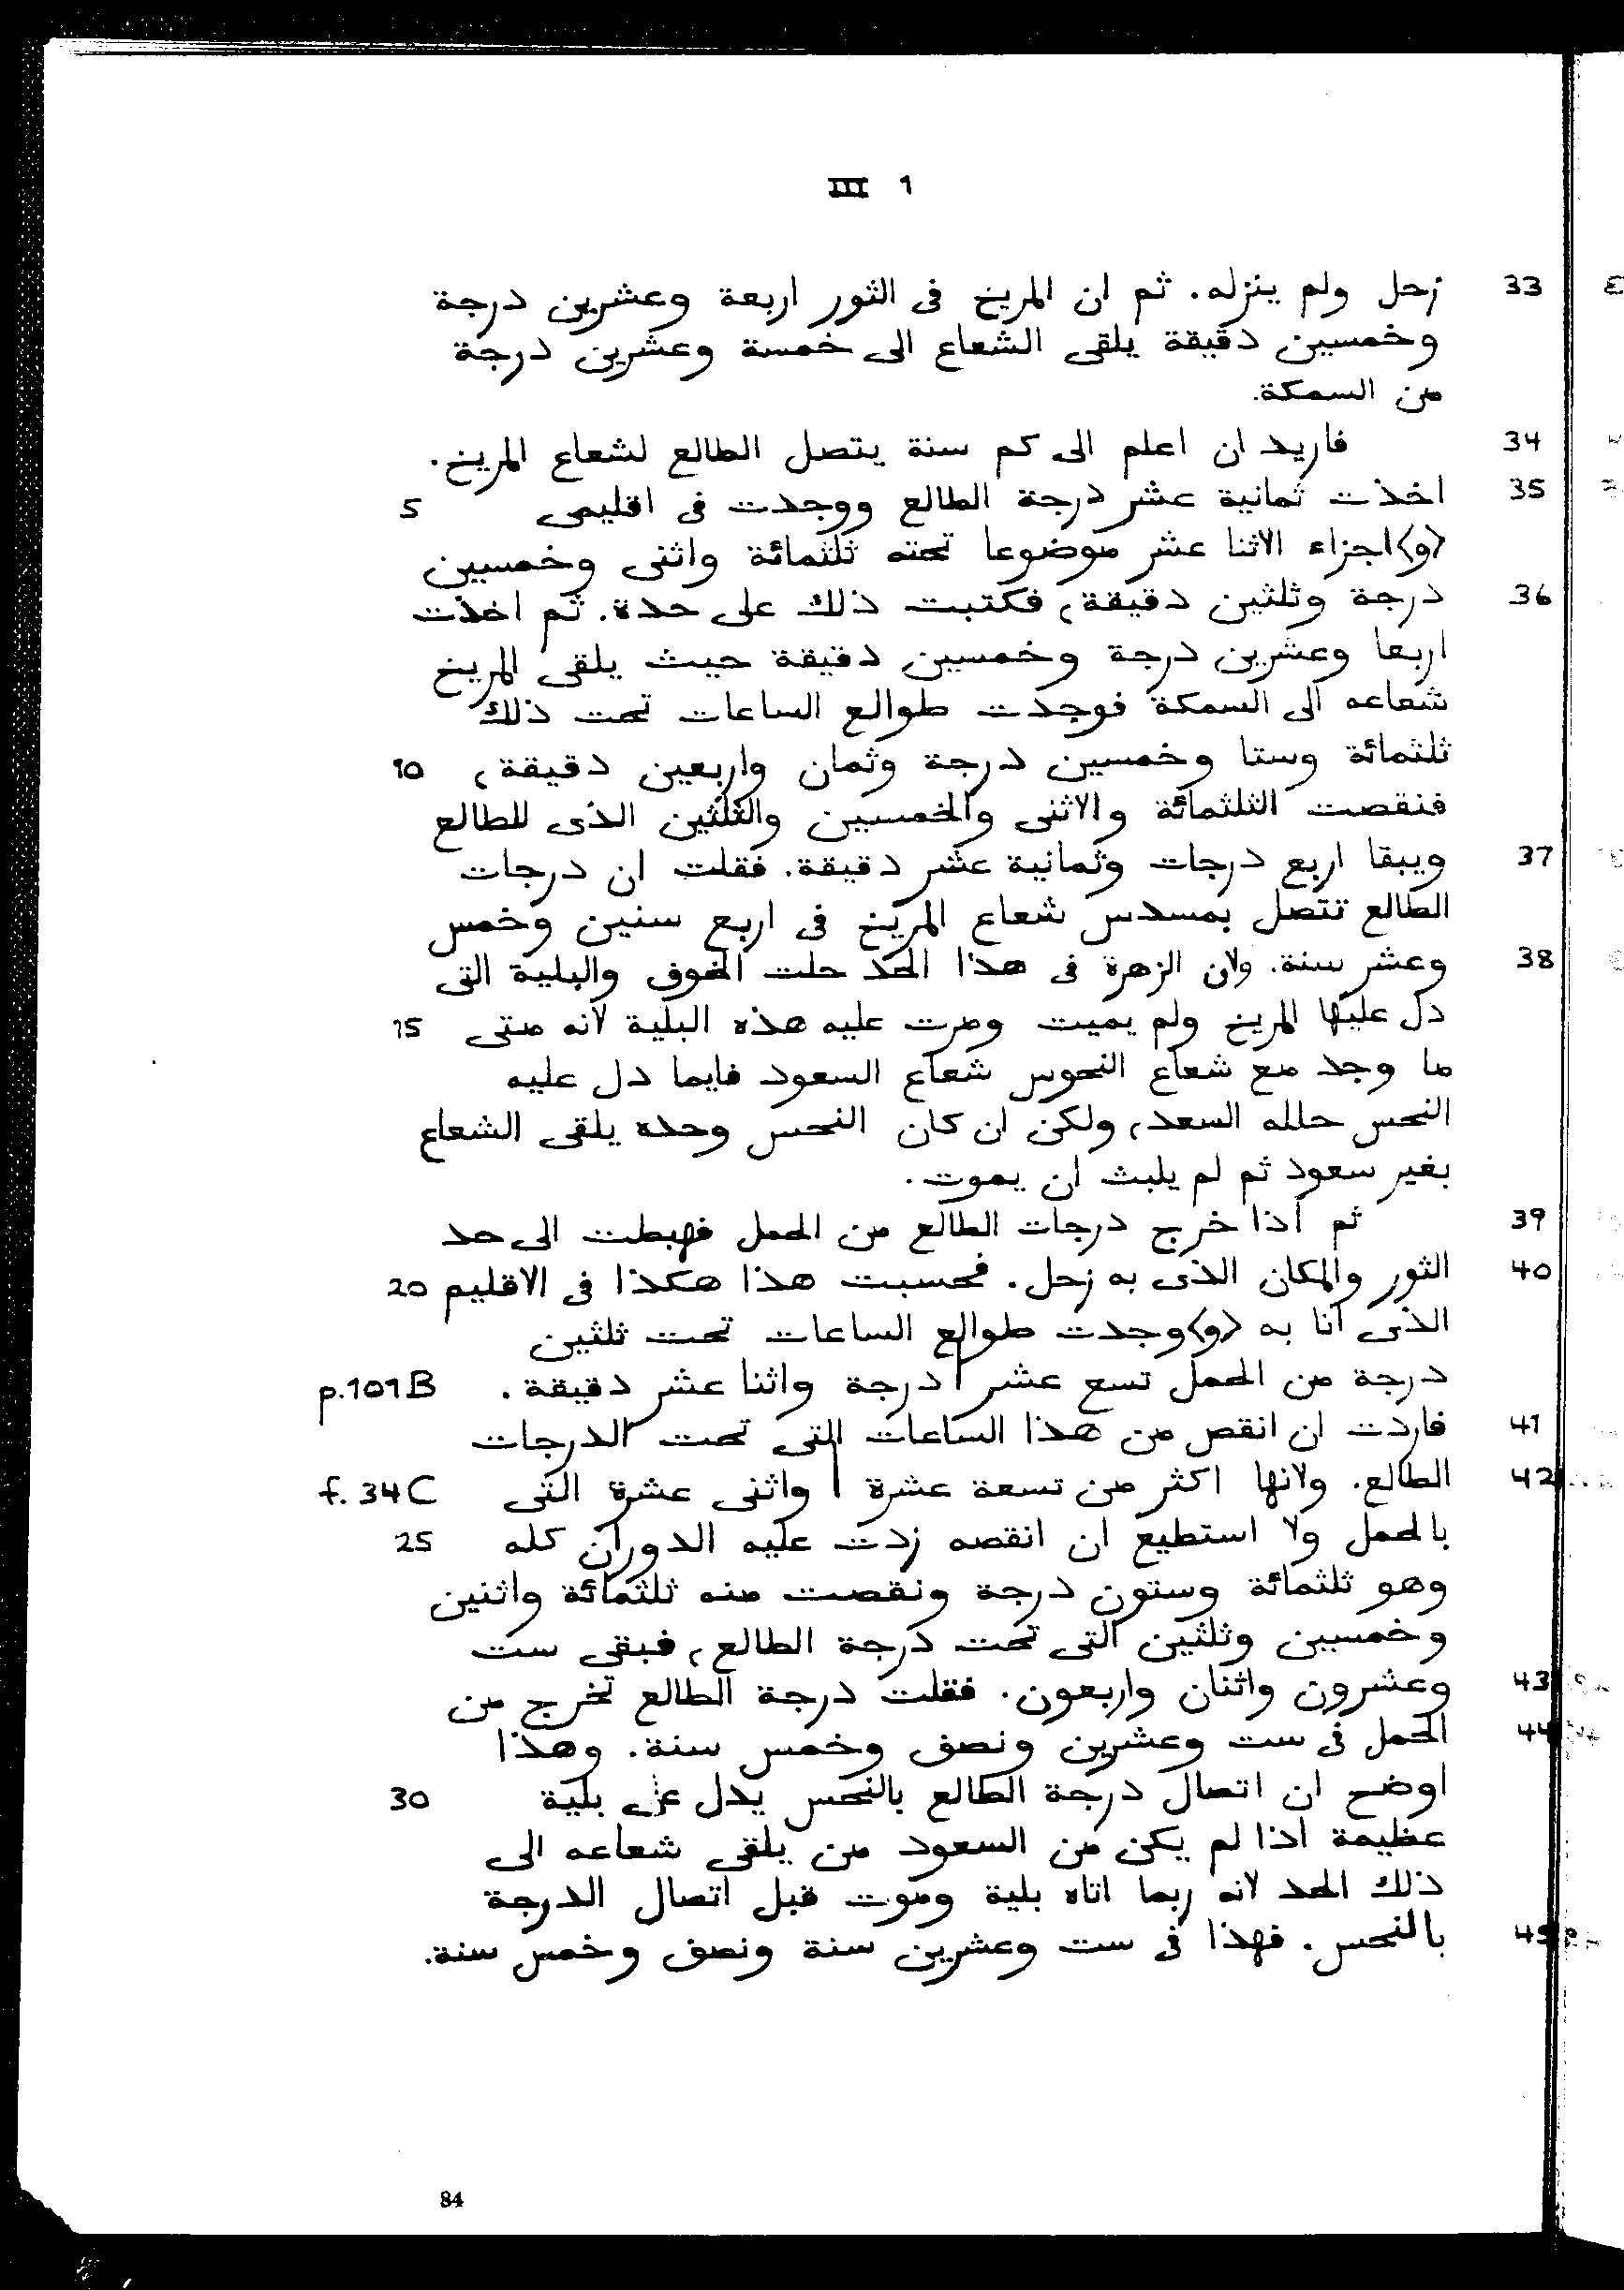 III 1
33 زحل ولم ينزله. ثم ان المريخ فى الثور اربعة وعشرين درجة
وخمسين دقيقة يلقى الشعاع الى خمسة وعشرين درجة
من السمكة.
34 فاريد ان اعلم الى كم سنة يتصل الطالع لشعاع المريخ.
35 اخذت ثمانية عشر درجة الطالع ووجدت فى اقليمى 5
〈و〉اجزاء الاثنا عشر موضوعا تحته ثلثمائة واثنى وخمسين
36 درجة وثلثين دقيقة، فكتبت ذلك على حدة. ثم اخذت
اربعا وعشرين درجة وخمسين دقيقة حيث يلقى المريخ
شعاعه الى السمكة فوجدت طوالع الساعات تحت ذلك
ثلثمائة وستا وخمسين درجة وثمان واربعين دقيقة، 10
فنقصت الثلثمائة والاثنى والخمسين والثلثين الذى للطالع
37 ويبقا اربع درجات وثمانية عشر دقيقة. فقلت ان درجات
الطالع تتصل بمسدس شعاع المريخ فى اربع سنين وخمس
38 وعشر سنة. ولان الزهرة فى هذا الحد حلت الخوف والبلية التى
دل عليها المريخ ولم يميت ومرت عليه هذه البلية لانه متى 15
ما وجد مع شعاع النحوس شعاع السعود فايما دل عليه
النحس حلله السعد، ولكن ان كان النحس وحده يلقى الشعاع
بغير سعود ثم لم يلبث ان يموت.
39 ثم اذا خرج درجات الطالع من الحمل فهبطت الى حد
40 الثور والمكان الذى به زحل. فحسبت هذا هكذا فى الاقليم 20
الذى انا به 〈و〉وجدت طوالع الساعات تحت ثلثين
درجة من الحمل تسع عشر | درجة واثنا عشر دقيقة. p.101B
41 فاردت ان انقص من هذا الساعات التى تحت الدرجات
42 الطالع. ولانها اكثر من تسعة عشرة | واثنى عشرة التى f. 34C
بالحمل ولا استطيع ان انقصه زدت عليه الدوران كله 25
وهو ثلثمائة وستون درجة ونقصت منه ثلثمائة واثنين
وخمسين وثلثين التى تحت درجة الطالع، فبقى ست
43 وعشرون واثنان واربعون. فقلت درجة الطالع تخرج من
44 الحمل فى ست وعشرين ونصف وخمس سنة. وهذا
اوضح ان اتصال درجة الطالع بالنحس يدل على بلية 30
عظيمة اذا لم يكن من السعود من يلقى شعاعه الى
ذلك الحد لانه ربما اتاه بلية وموت قبل اتصال الدرجة
45 بالنحس. فهذا فى ست وعشرين سنة ونصف وخمس سنة.
84